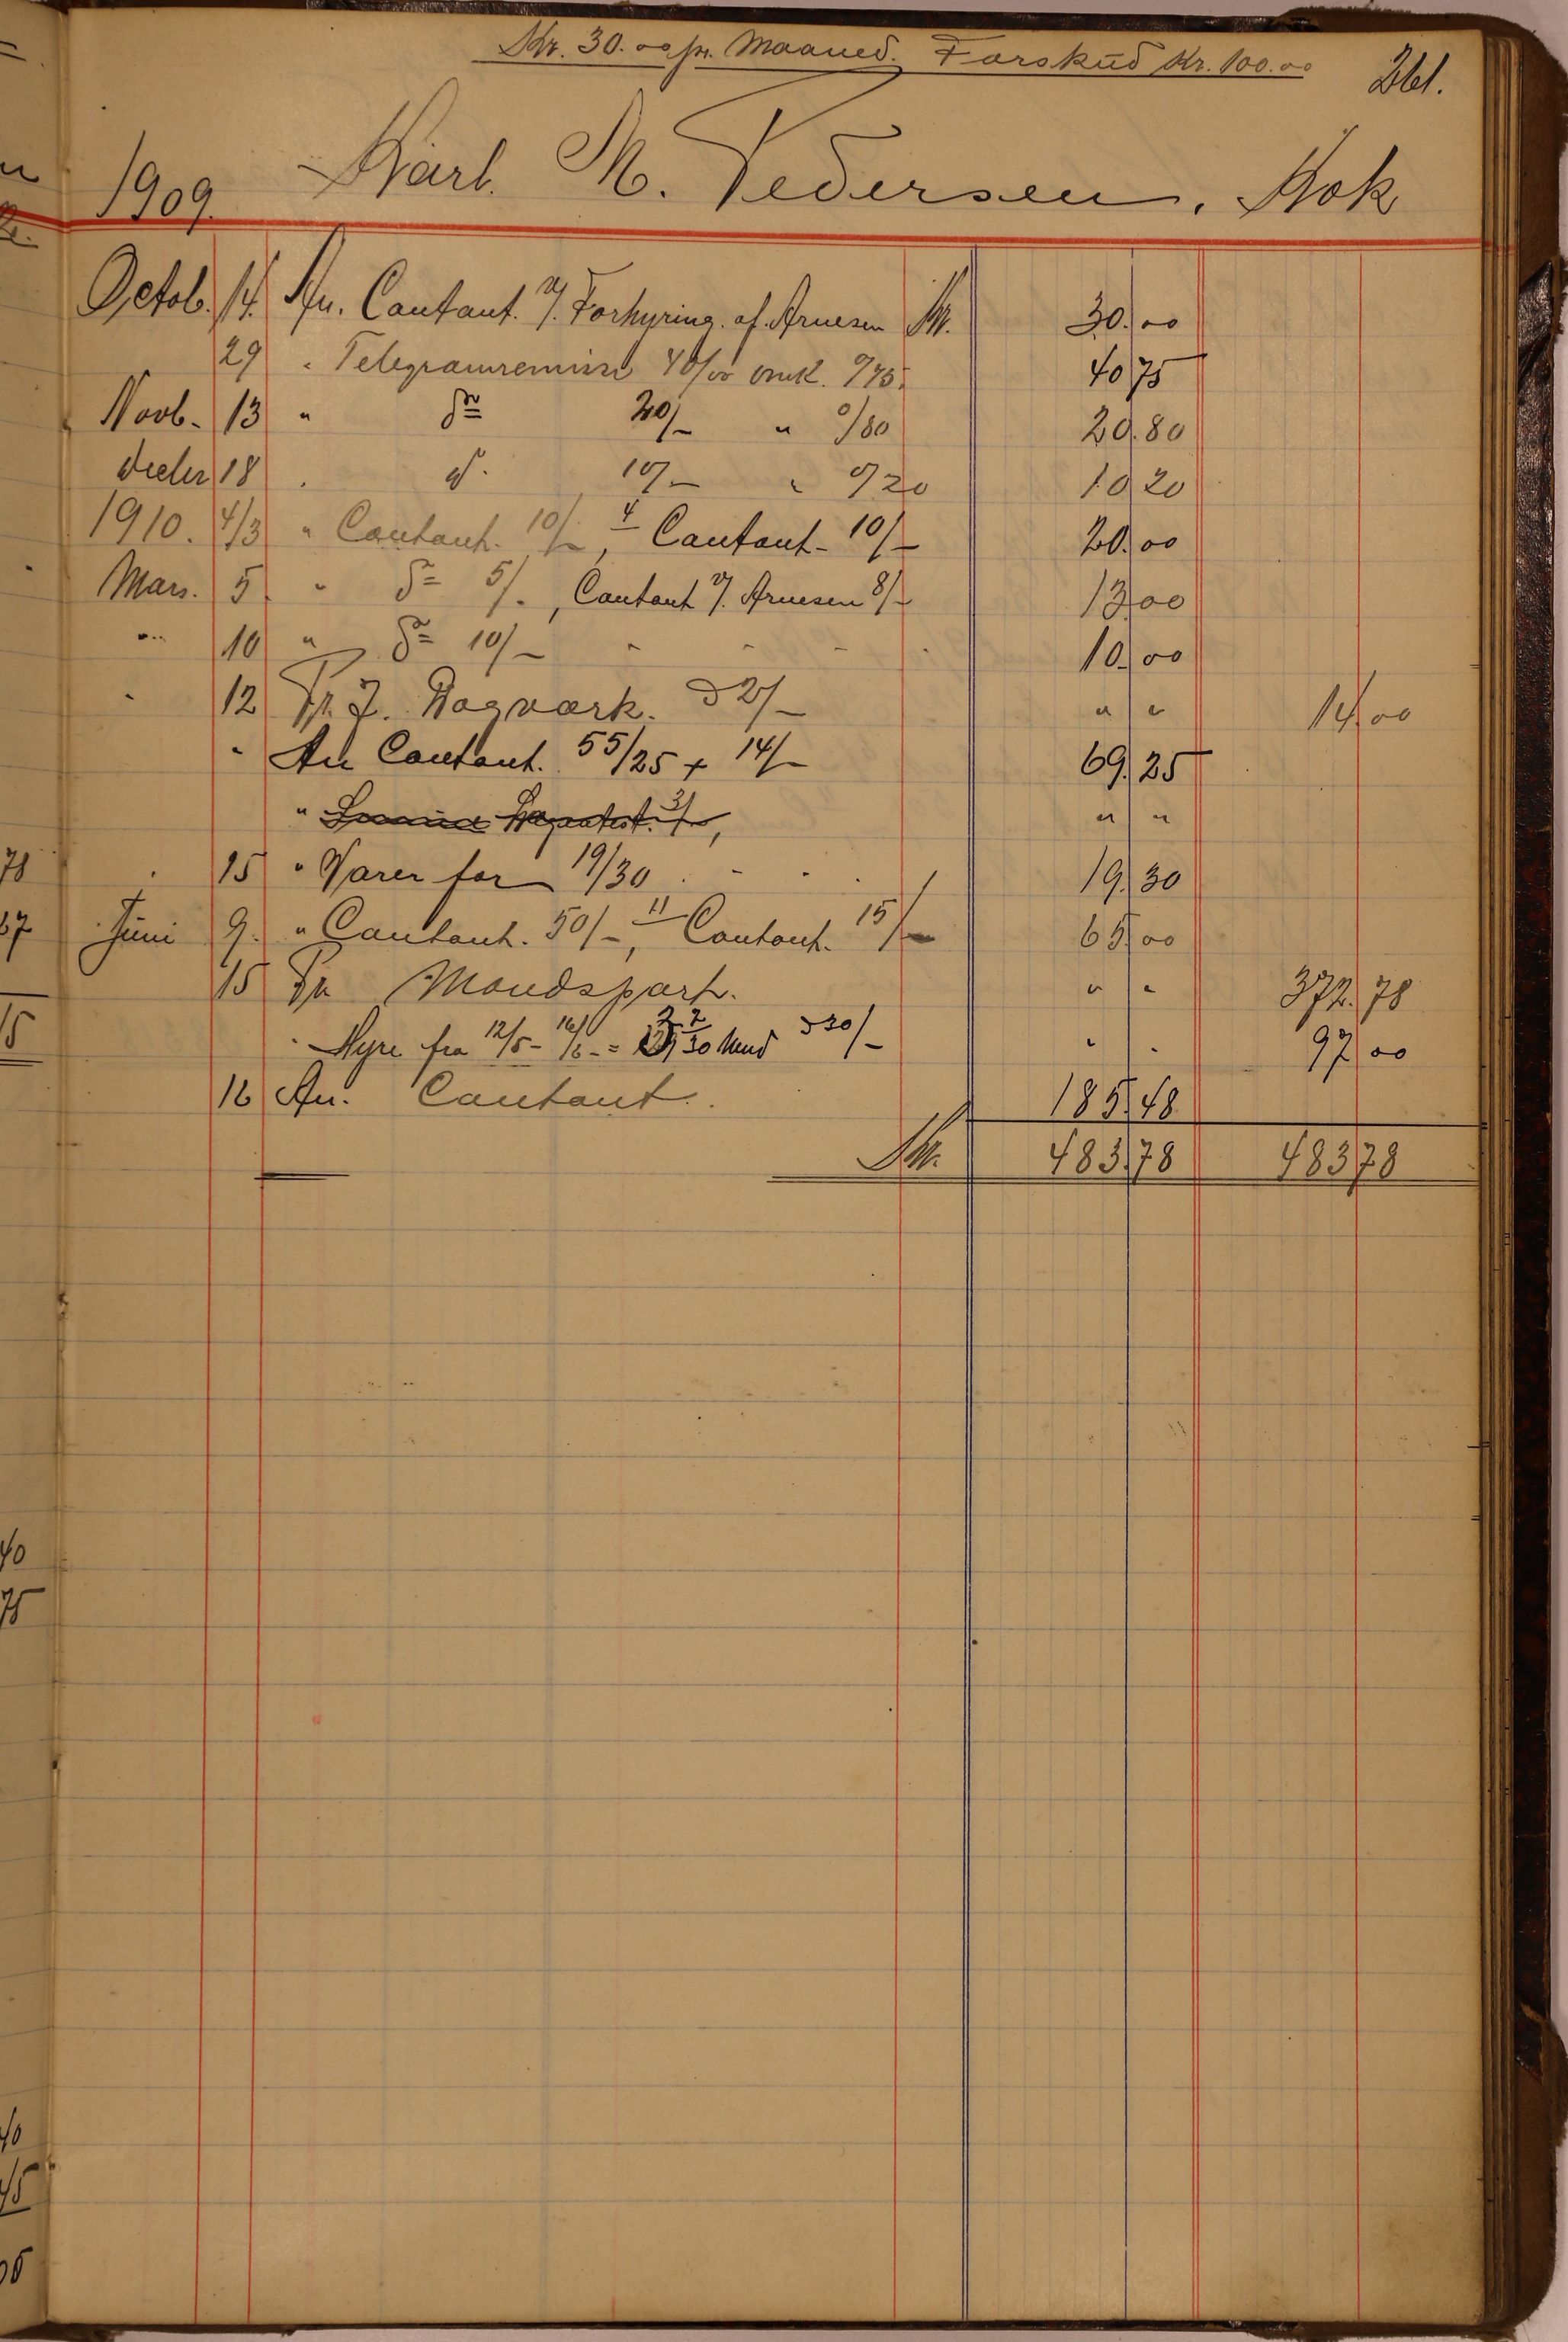 Kr. 30.00 pr. Maaned. Forskud Kr. 100.00
261.
1909. Karl. M. Pedersen, Kok
Octob. 14. An. Contant. v/. Forhyring. af. Arnesen Kr. 30.00
29 " Telegramremisse 40/00 omk. 0/75. 40 75
Novb. 13 " do 20/- " 0/80 20.80
Decbr 18 " do 10/- " 0/20 10 20
1910. 4/3 " Contant. 10/-, 4 Contant- 10/- 20.00
Mars. 5 " do 5/-, Contant v/. Arnesen 8/- 13.00
" 10 " do 10/- 10.00
" 12 Pr. 7. Dagværk. à 2/- " " 14.00
" An Contant. 55/25 + 14/- 69.25
" 3/-, " "
" 15 " Varer for 19/30 19.30
Juni 9. " Contant. 50/-, 11 Contant. 15/- 65.00
15 Pr Mandspart. " " 372.78
" Hyre fra 12/5 - 16/6 - = 3 7/30 Mnd à 30/- " " 97 00
16 An. Contant. 185.48
Kr. 483.78 483 78
78
37
15
40
75
40
45
05